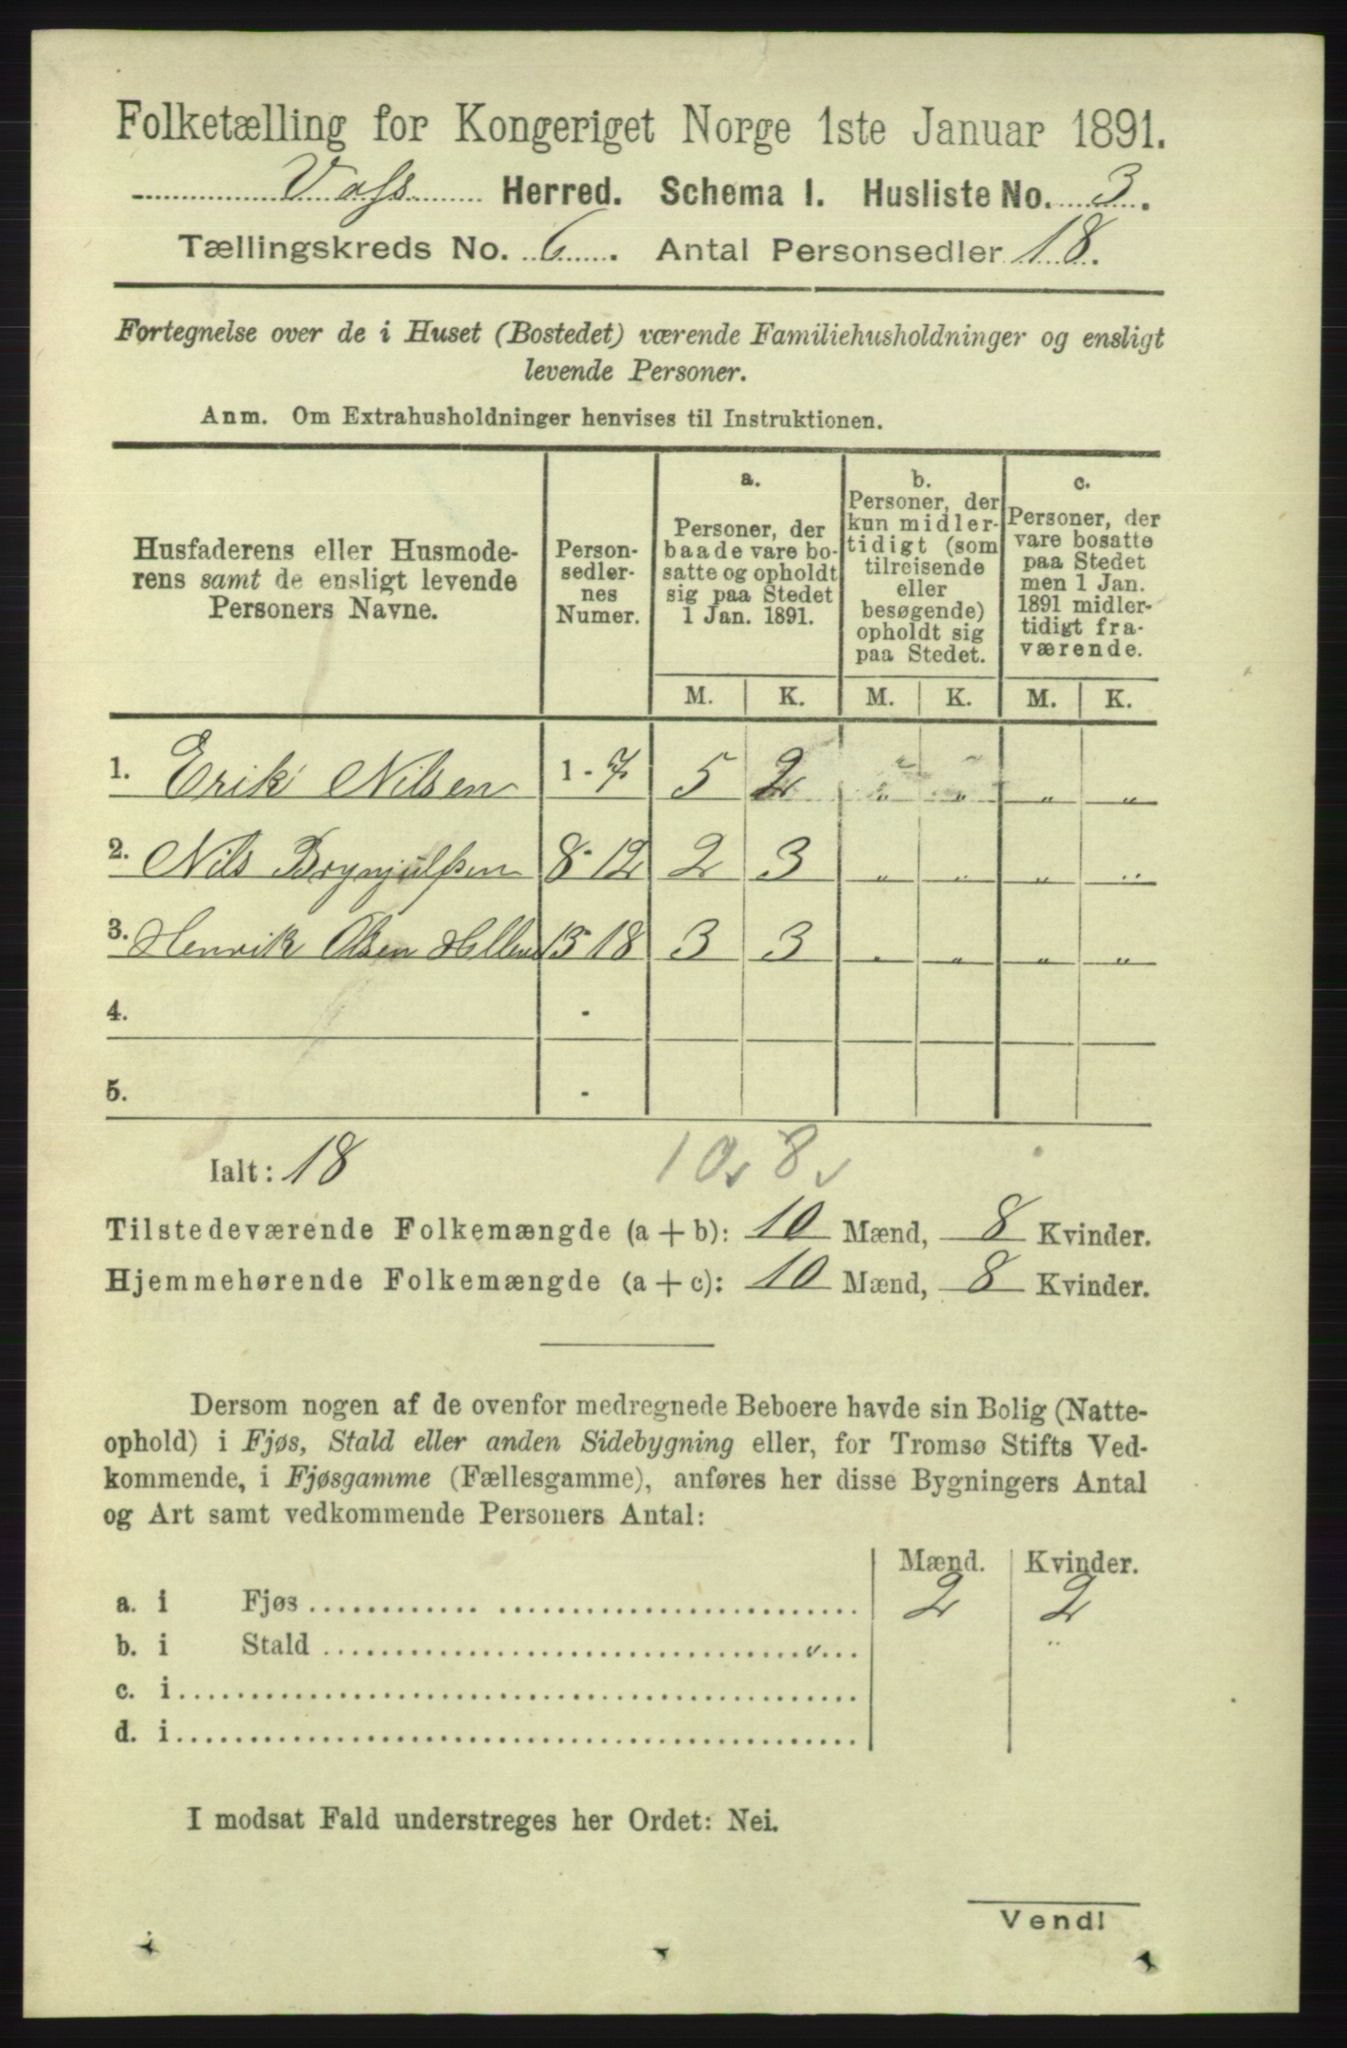 Folketælling for Kongeriget Norge 1ste Januar 1891.
Voss Herred. Schema I. Husliste No. 3.
Tællingskreds No. 6. Antal Personsedler 18.
Fortegnelse over de i Huset (Bostedet) værende Familiehusholdninger og ensligt
levende Personer.
Anm. Om Extrahusholdninger henvises til Instruktionen.
Husfaderens eller Husmode-
rens samt de ensligt levende
Personers Navne.
Person-
sedler-
nes
Numer.
a.
Personer, der
baade vare bo-
satte og opholdt
sig paa Stedet
1 Jan. 1891.
b.
Personer, der
kun midler-
tidigt (som
tilreisende
eller
besøgende)
opholdt sig
paa Stedet.
c.
Personer, der
vare bosatte
paa Stedet
men 1 Jan.
1891 midler-
tidigt fra-
værende.
M. K. M. K. M. K.
1. Erik Nilsen 1 - 7 5 2 " " " "
2. Nils Brynjulfsen 8 - 12 2 3 " " " "
3. Henrik Olsen 13 - 18 3 3 " " " "
4. -
5. -
Ialt: 18 10 8
Tilstedeværende Folkemængde (a + b): 10 Mænd, 8 Kvinder.
Hjemmehørende Folkemængde (a + c): 10 Mænd, 8 Kvinder.
Dersom nogen af de ovenfor medregnede Beboere havde sin Bolig (Natte-
ophold) i Fjøs, Stald eller anden Sidebygning eller, for Tromsø Stifts Ved-
kommende, i Fjøsgamme (Fællesgamme), anføres her disse Bygningers Antal
og Art samt vedkommende Personers Antal:
Mænd. Kvinder.
a. i Fjøs 2 2
b. i Stald " "
c. i
d. i
I modsat Fald understreges her Ordet: Nei.
Vend!